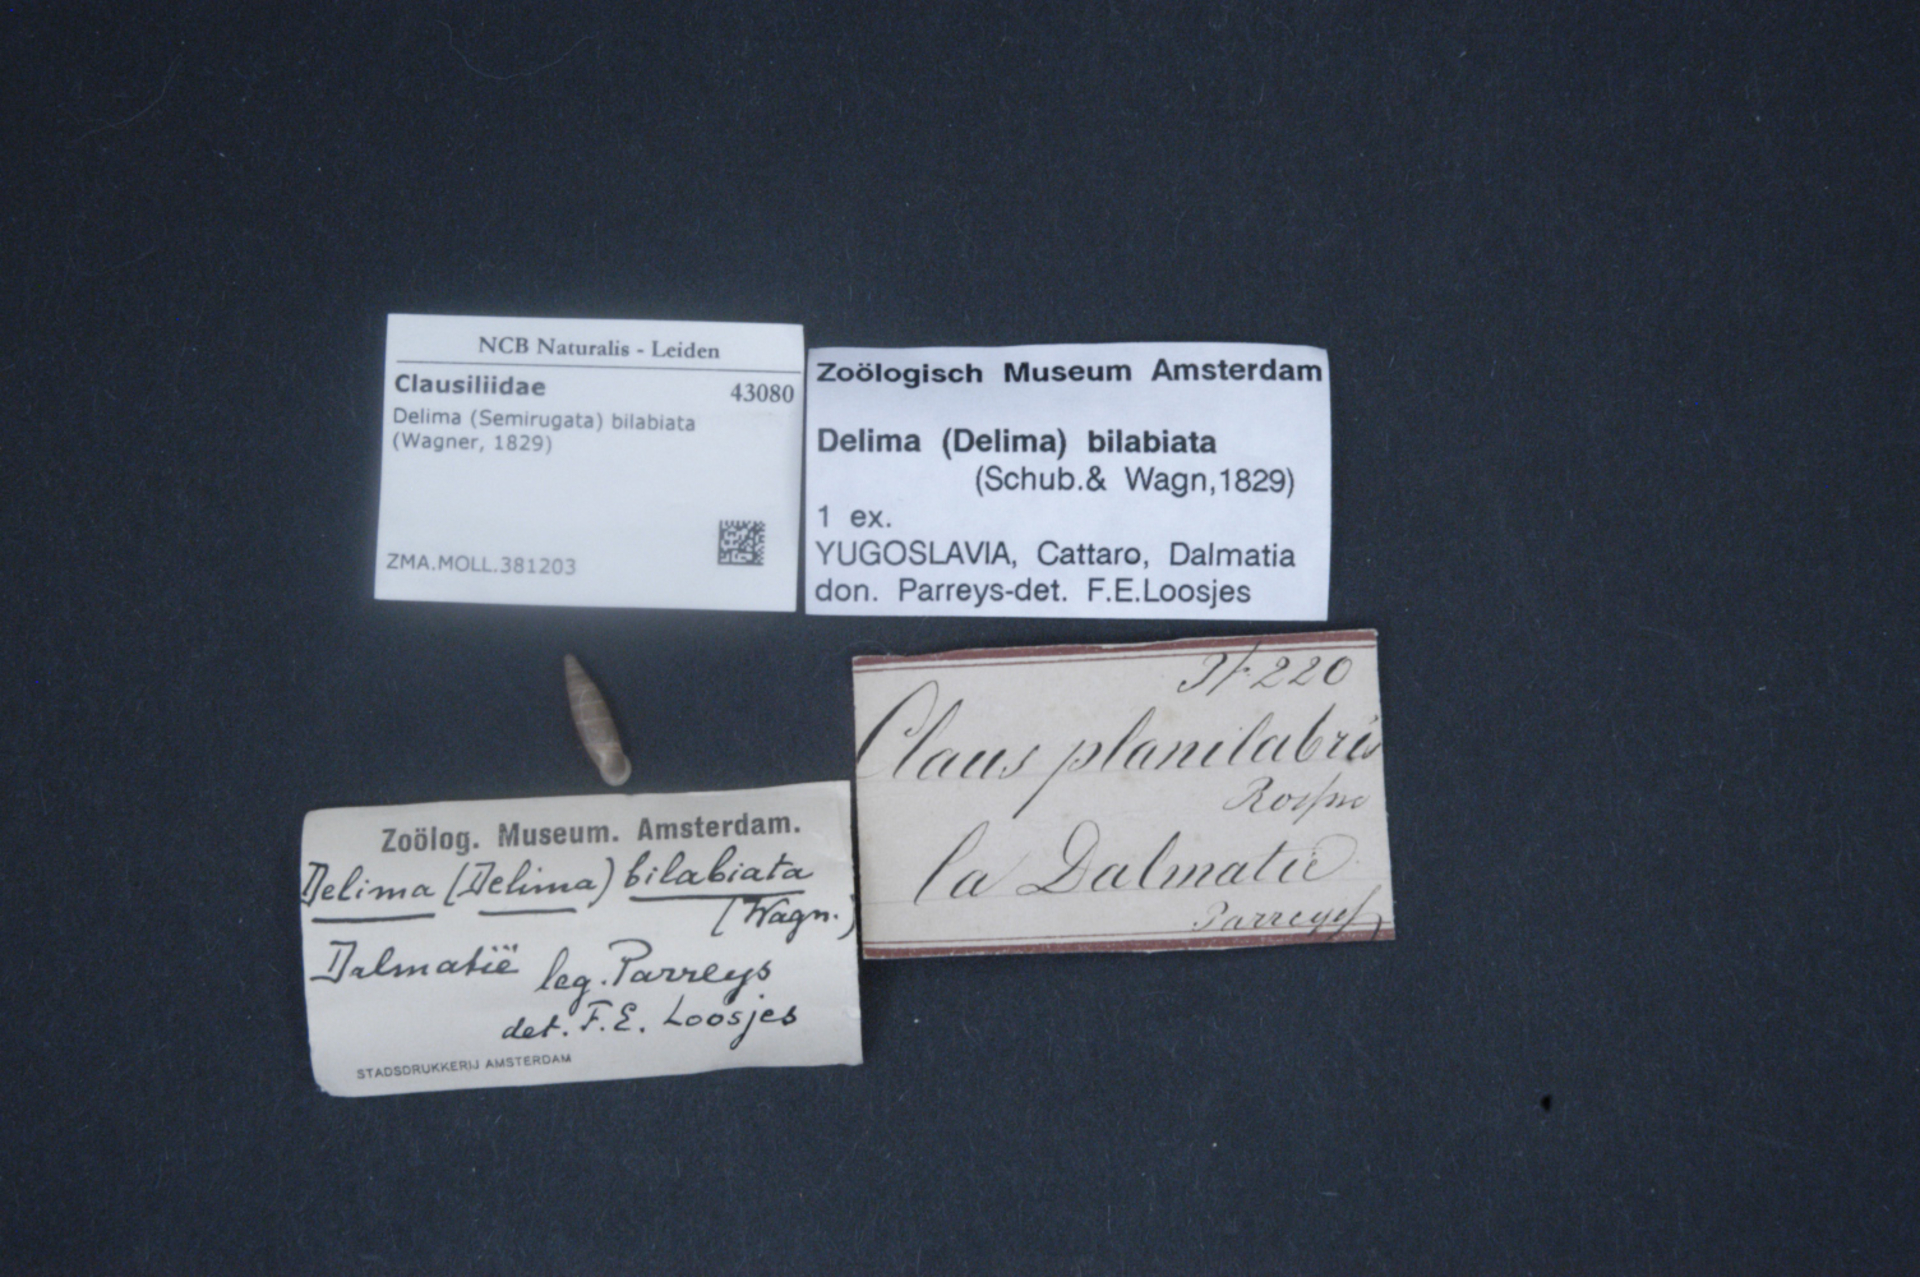 NCB Naturalis - Leiden
Clausiliidae 43080
Delima (Semirugata) bilabiata
(Wagner, 1829)
ZMA.MOLL.381203
Zoölogisch Museum Amsterdam
Delima (Delima) bilabiata
(Schub.& Wagn,1829)
1 ex.
YUGOSLAVIA, Cattaro, Dalmatia
don. Parreys-det. F.E.Loosjes
Zoölog. Museum. Amsterdam.
Delima (Delima) bilabiata
(Wagn.)
Dalmatië leg. Parreys
det. F.E. Loosjes
STADSDRUKKERIJ AMSTERDAM
220
Claus planilabris
la Dalmatie